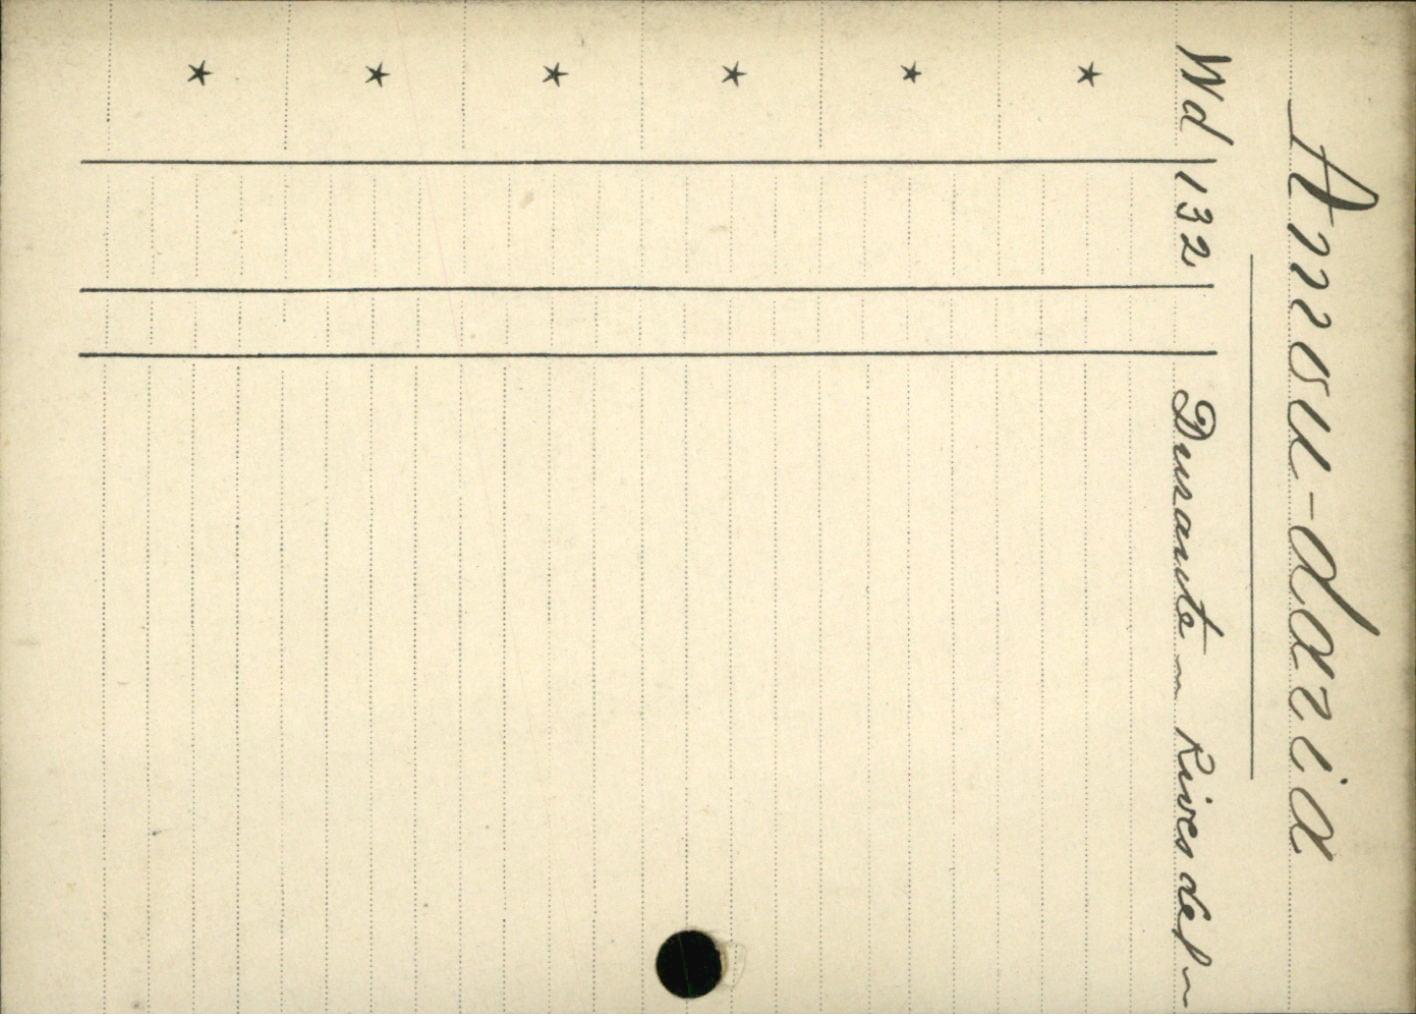 Amou-daria
Wd 132 Durante ~ Rives de l ~